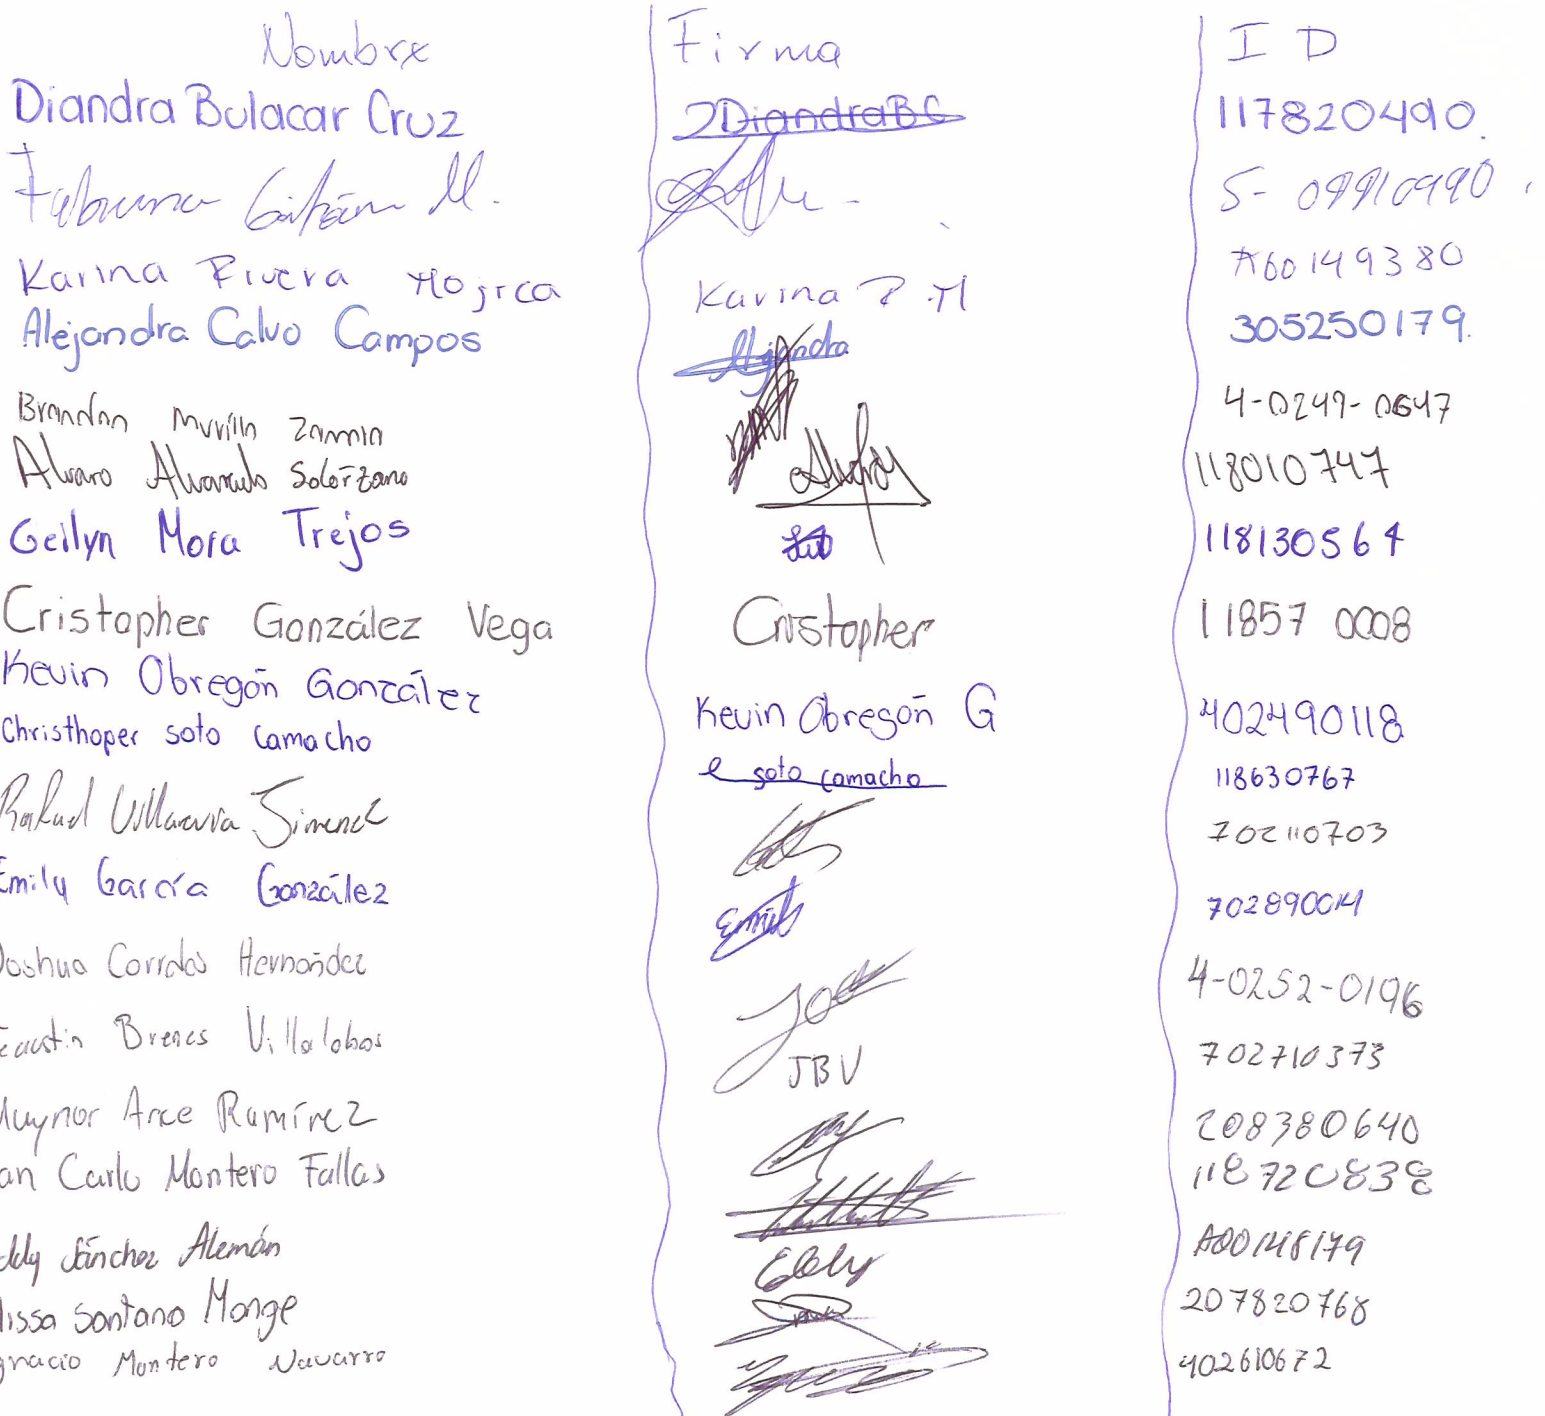 Nombre Firma ID
Diandra Bulacar Cruz DiandraBC 117820490.
Gaitán M. 5-
Karina Rivera Mojica Karina R.M A00149380
Alejandra Calvo Campos Alejandra 305250179.
Brandon Murillo 4-0249-0647
Alvaro Alvarado Solórzano 118010747
Geilyn Mora Trejos 118130564
Cristopher González Vega Cristopher 11857 0008
Kevin Obregón González Kevin Obregón G 402490118
Christhoper soto camacho c soto camacho 118630767
Rafael Villanueva Jimenez 702110703
Emily García González Emily 702890014
Joshua Corrales Hernández 4-0252-0196
Brenes Villalobos JBV 702710373
Arce Ramírez 208380640
an Carlo Montero Fallas 118720838
ddy Sánchez Alemán Eddy A00148179
lissa Santana Monge 207820768
gnacio Montero Navarro 402610672